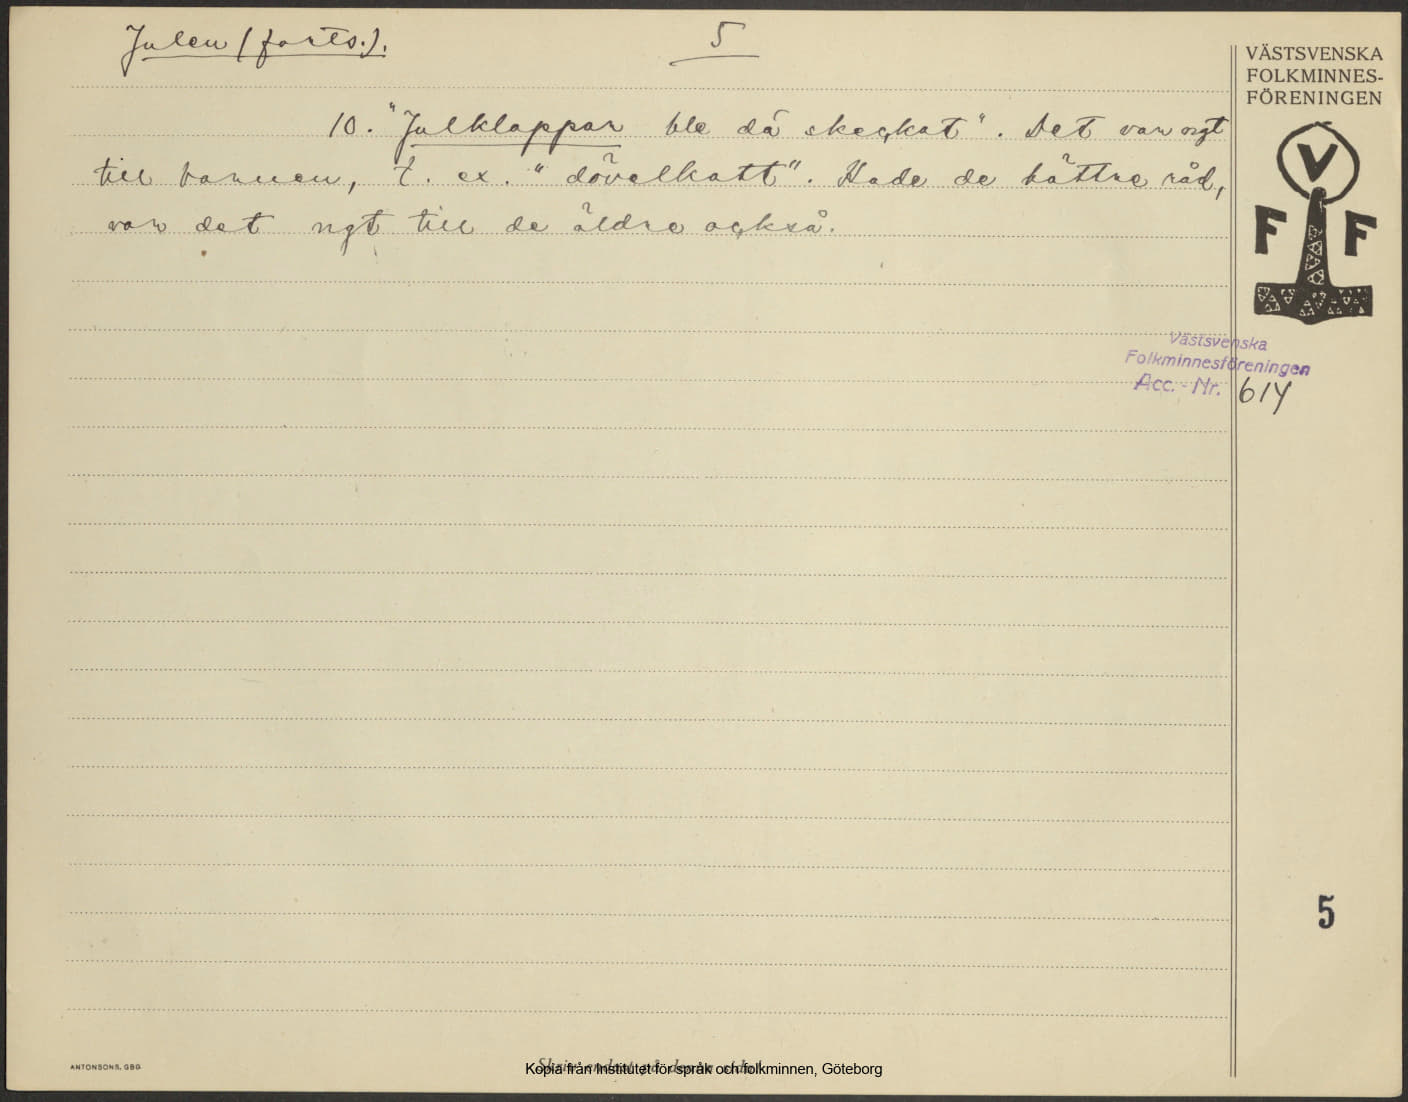 Julen (forts.).
5
VÄSTSVENSKA
FOLKMINNES-
FÖRENINGEN
10. "Julklappar ble då skeçkat". Det var ngt
till barnen, t. ex. "dövelkatt". Hade de bättre råd,
var det ngt till de äldre oçkså.
V
F F
Västsvenska
Folkminnesföreningen
Acc. - Nr. 614
5
ANTONSONS, GBG
Skriv endast på denna sida!
Kopia från Institutet för språk och folkminnen, Göteborg